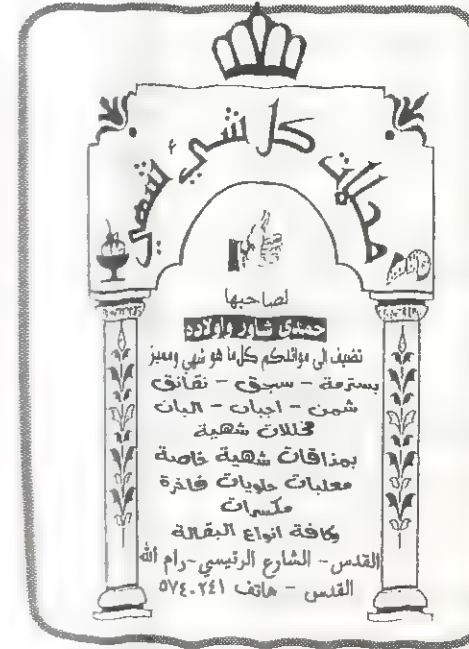 محلات كل شيء شهي
لصاحبها
حمدي شاور واولاده
نضيف الى موائدكم كل ما هو شهي ومميز
بسترمة - سجق - نقانق
سمن - اجبان - البان
مخللات شهية
بمذاقات شهية خاصة
معلبات حلويات فاخرة
مكسرات
وكافة انواع البقالة
القدس - الشارع الرئيسي - رام الله
القدس - هاتف ٥٧٤٠٢٤١